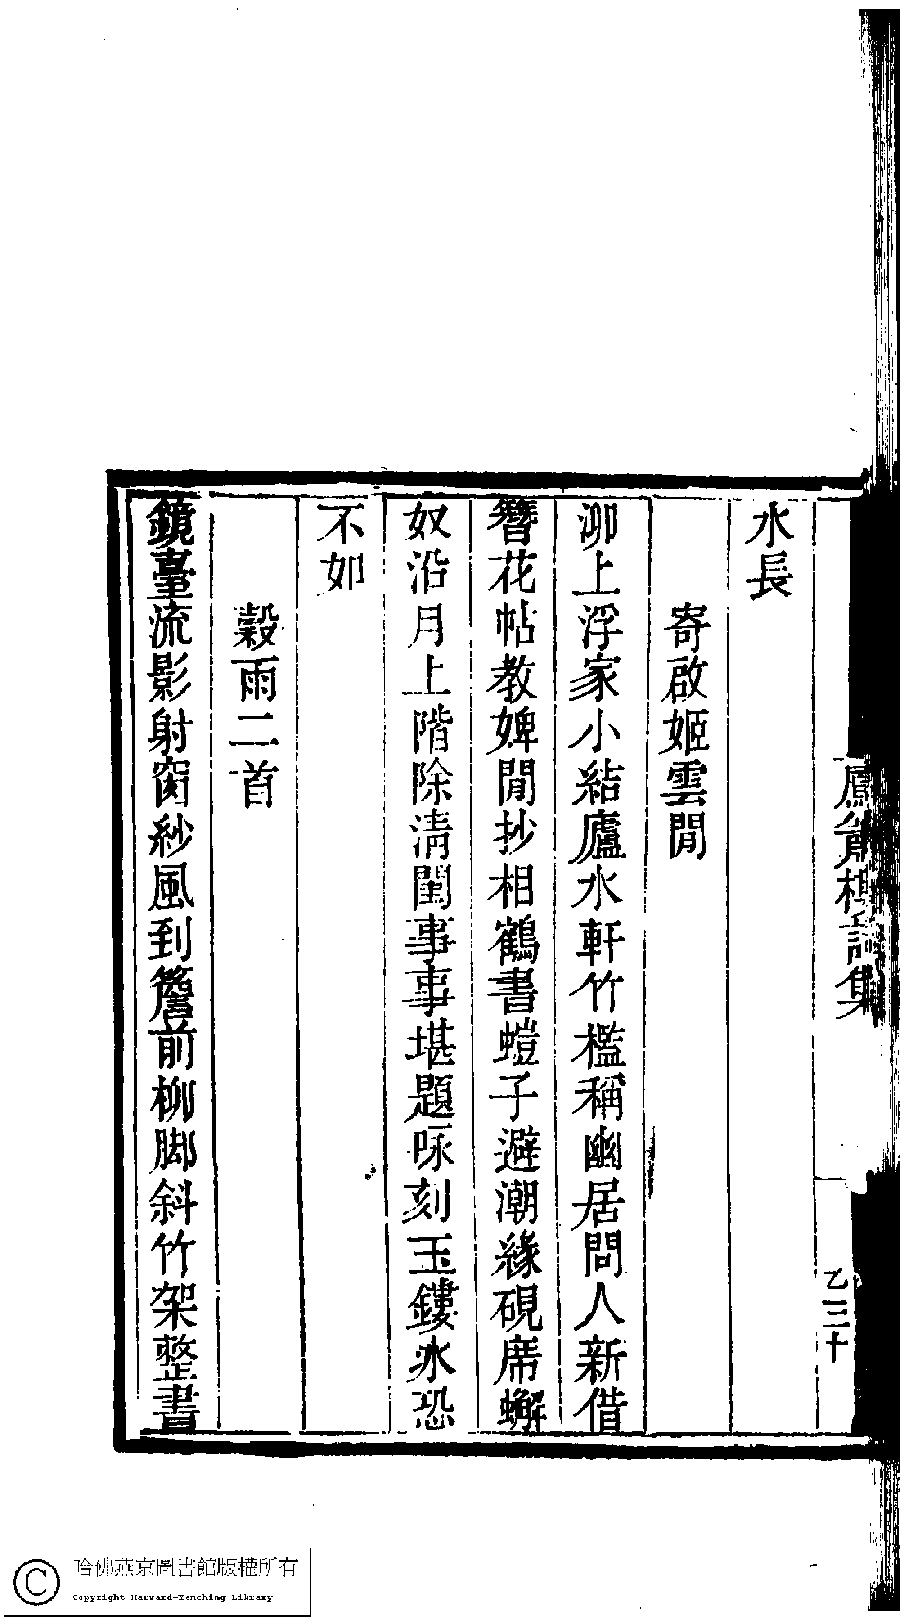 水長
寄啟姬雲閒
泖上浮家小結廬水軒竹檻稱幽居問人新借
簪花帖教婢閒抄相鶴書螘子避潮緣硯席蠏
奴沿月上階除淸閨事事堪題咏刻玉鏤冰恐
不如
穀雨二首
鏡臺流影射窗紗風到簷前柳脚斜竹架整書
集
乙三十
哈佛燕京圖書館版權所有
Copyright Harvard-Yenching Library